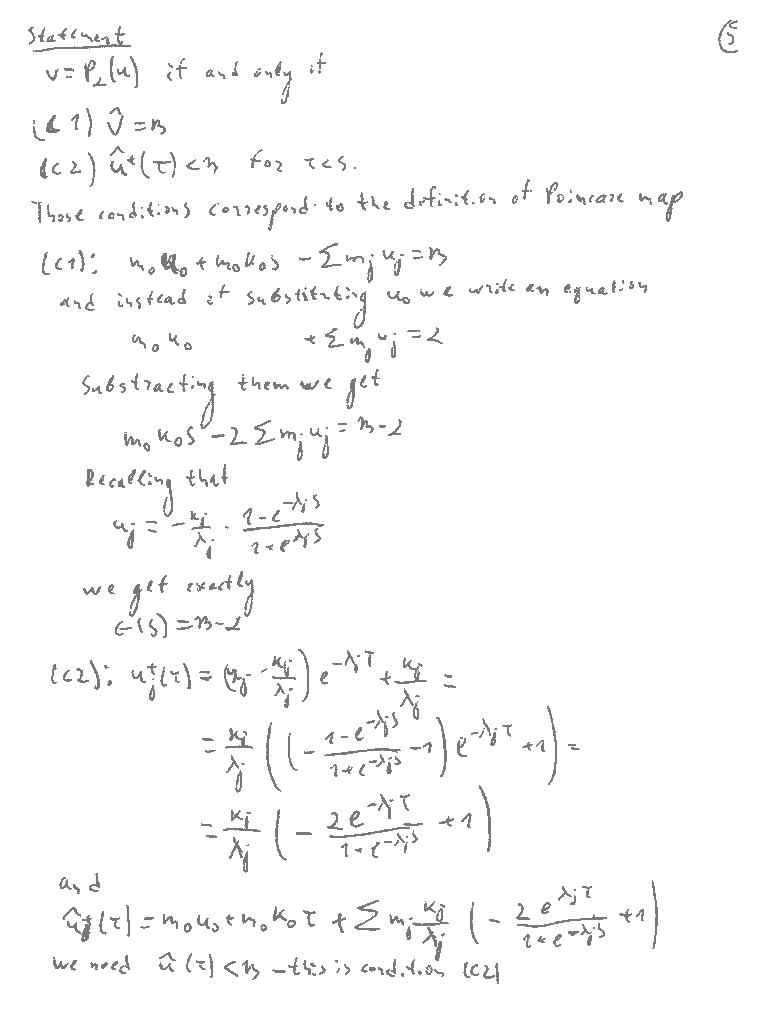 Statement
(5)
v = P_2(u) if and only if
(C1) v̂ = B
(C2) û⁺(τ) < B for τ<s.
Those conditions correspond to the definition of Poincare map
(C1): m_0 u_0 + m_0 k_0 s - Σ m_j u_j = B
and instead of substituting u_0 we write an equation
m_0 u_0 + Σ m_j u_j = 2
Substracting them we get
m_0 k_0 s - 2 Σ m_j u_j = B - 2
Recalling that
u_j = - k_j/λ_j · (1-e^{-λ_j s})/(1+e^{λ_j s})
we get exactly
F(s) = B-2
(C2): u_j^+(τ) = (u_j - k_j/λ_j) e^{-λ_j τ} + k_j/λ_j =
= k_j/λ_j ((- (1-e^{-λ_j s})/(1+e^{-λ_j s}) - 1) e^{-λ_j τ} + 1) =
= k_j/λ_j (- 2e^{-λ_j τ}/(1+e^{-λ_j s}) + 1)
and
û_j^+(τ) = m_0 u_0 + m_0 k_0 τ + Σ m_j k_j/λ_j (- 2e^{λ_j τ}/(1+e^{-λ_j s}) + 1)
we need û(τ) < B - this is condition (C2)